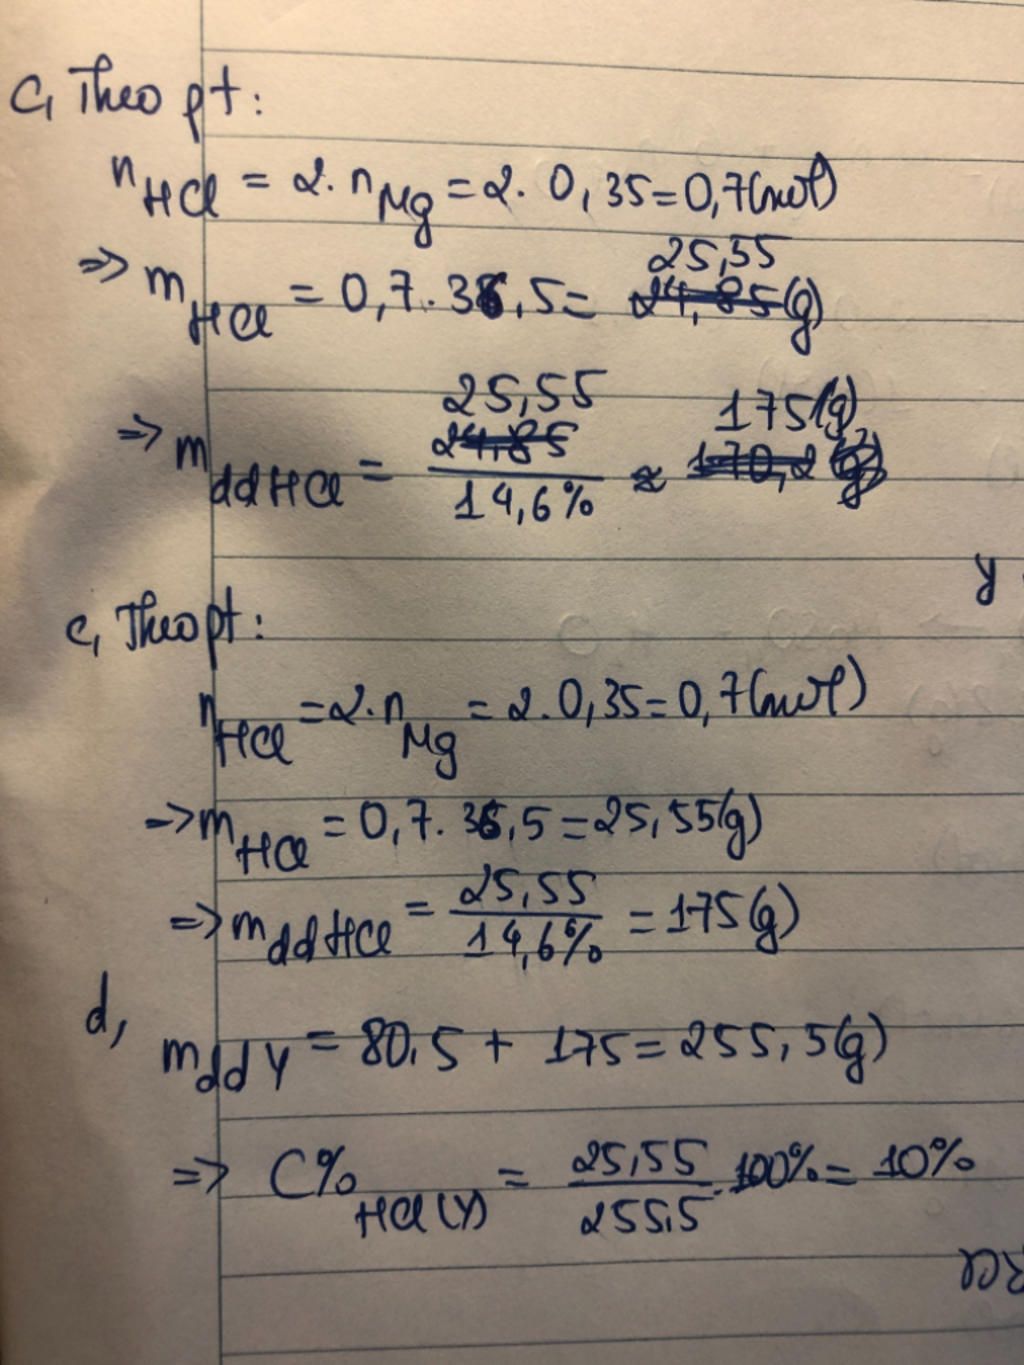 c, Theo pt:
n HCl = 2. n Mg = 2. 0,35 = 0,7 (mol)
25,55
=> m HCl = 0,7. 36,5 = 24,85 (g)
25,55 175 (g)
=> m ddHCl = 24,85 / 14,6% ≈ 170,2 (g)
y
c, Theo pt:
n HCl = 2. n Mg = 2. 0,35 = 0,7 (mol)
=> m HCl = 0,7. 36,5 = 25,55 (g)
=> m ddHCl = 25,55 / 14,6% = 175 (g)
d,
m dd Y = 80,5 + 175 = 255,5 (g)
=> C% HCl (Y) = 25,55 / 255,5 . 100% = 10%